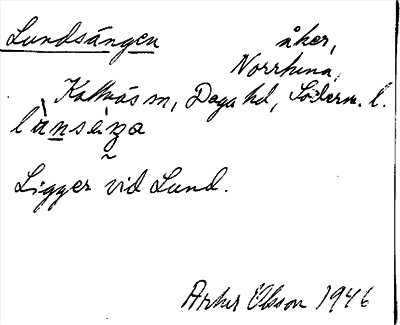 Lundsängen åker,
Norrhuna,
Kattnäs sn, Daga hd, Söderm. l.
lùnséŋa
Ligger vid Lund.
Artur Olsson 1946